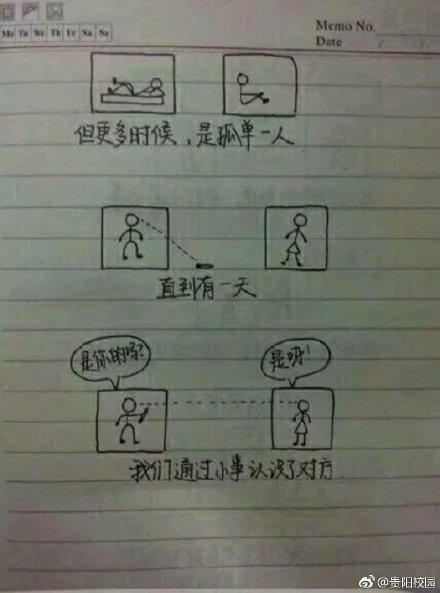 Memo No.
Mo Tu We Th Fr Sa Su
Date
但更多时候，是孤单一人
直到有一天
是你的吗？
是呀！
我们通过小事认识了对方
@贵阳校园